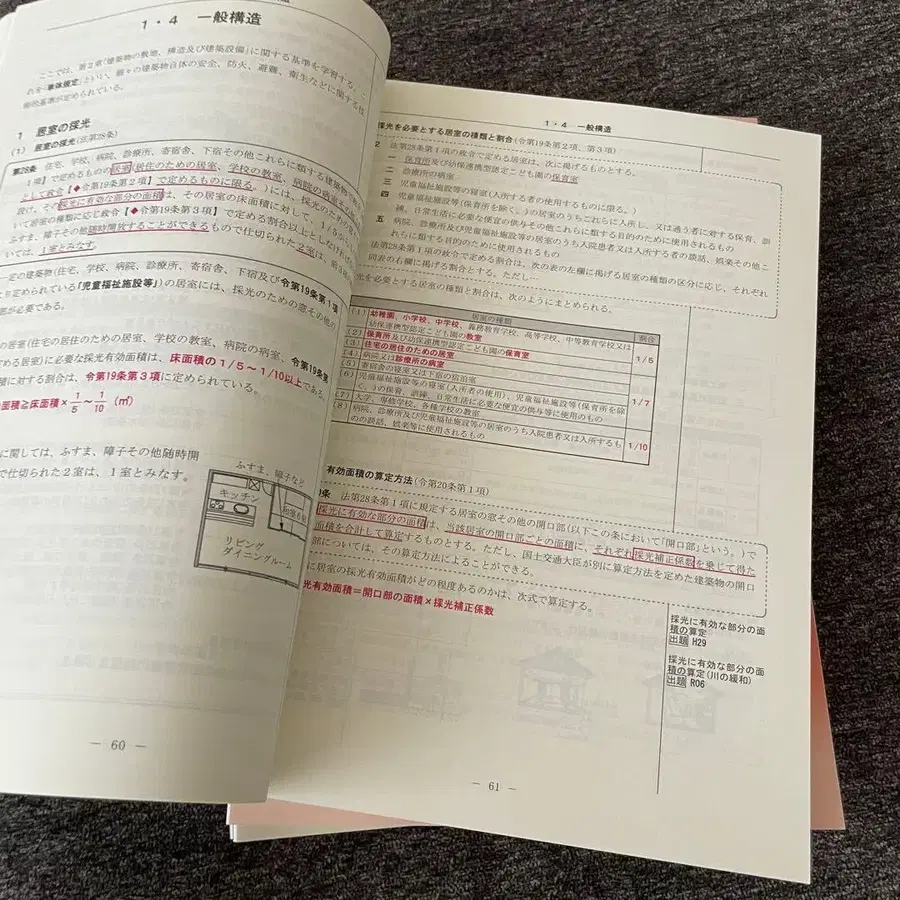 1・4 一般構造
ここでは、第2章「建築物の敷地、構造及び建築設備」に関する基準を学習する。こ
れを単体規定といい、個々の建築物自体の安全、防火、避難、衛生などに関する技
術的基準が定められている。
1 居室の採光
(1) 居室の採光(法第28条)
第28条 住宅、学校、病院、診療所、寄宿舎、下宿その他これらに類する建築物
1項】で定めるものの居室(居住のための居室、学校の教室、病院の病室その他
として政令【◆令第19条第2項】で定めるものに限る。)には、採光のための
設け、その採光に有効な部分の面積は、その居室の床面積に対して、1/5から
いて居室の種類に応じ政令【◆令第19条第3項】で定める割合以上としなければ
ふすま、障子その他随時開放することができるもので仕切られた2室は、
いては、1室とみなす。
一定の建築物(住宅、学校、病院、診療所、寄宿舎、下宿及び令第19条第1項
定められている「児童福祉施設等」)の居室には、採光のための窓その他の
部が必要である。
の居室(住宅の居住のための居室、学校の教室、病院の病室、令第19条第
める居室)に必要な採光有効面積は、床面積の1/5~1/10以上である。
積に対する割合は、令第19条第3項に定められている。
面積≧床面積×1/5~1/10 (㎡)
に関しては、ふすま、障子その他随時開
で仕切られた2室は、1室とみなす。
ふすま、障子など
キッチン
リビング
ダイニングルーム
― 60 ―
1・4 一般構造
採光を必要とする居室の種類と割合(令第19条第2項、第3項)
2 法第28条第1項の政令で定める居室は、次に掲げるものとする。
一 保育所及び幼保連携型認定こども園の保育室
二 診療所の病室
三 児童福祉施設等の寝室(入所する者の使用するものに限る。)
四 児童福祉施設等(保育所を除く。)の居室のうちこれらに入所し、又は通う者に対する保育、訓
練、日常生活に必要な便宜の供与その他これらに類する目的のために使用されるもの
五 病院、診療所及び児童福祉施設等の居室のうち入院患者又は入所する者の談話、娯楽その他こ
れらに類する目的のために使用されるもの
法第28条第1項の政令で定める割合は、次の表の左欄に掲げる居室の種類の区分に応じ、それぞれ
同表の右欄に掲げる割合とする。ただし…
光を必要とする居室の種類と割合は、次のようにまとめられる。
居室の種類 割合
(1) 幼稚園、小学校、中学校、義務教育学校、高等学校、中等教育学校又は
幼保連携型認定こども園の教室 1/5
(2) 保育所及び幼保連携型認定こども園の保育室
(3) 住宅の居住のための居室
(4) 病院又は診療所の病室 1/7
(5) 寄宿舎の寝室又は下宿の宿泊室
(6) 児童福祉施設等の寝室(入所者の使用)、児童福祉施設等(保育所を除
く。)の保育、訓練、日常生活に必要な便宜の供与等に使用のもの
(7) 大学、専修学校、各種学校の教室 1/10
(8) 病院、診療所及び児童福祉施設等の居室のうち入院患者又は入所するも
のの談話、娯楽等に使用されるもの
有効面積の算定方法(令第20条第1項)
条 法第28条第1項に規定する居室の窓その他の開口部(以下この条において「開口部」という。)で
採光に有効な部分の面積は、当該居室の開口部ごとの面積に、それぞれ採光補正係数を乗じて得た
面積を合計して算定するものとする。ただし、国土交通大臣が別に算定方法を定めた建築物の開口
部については、その算定方法によることができる。
に居室の採光有効面積がどの程度あるのかは、次式で算定する。
光有効面積=開口部の面積×採光補正係数
採光に有効な部分の面
積の算定
出題 H29
採光に有効な部分の面
積の算定(川の緩和)
出題 R06
― 61 ―